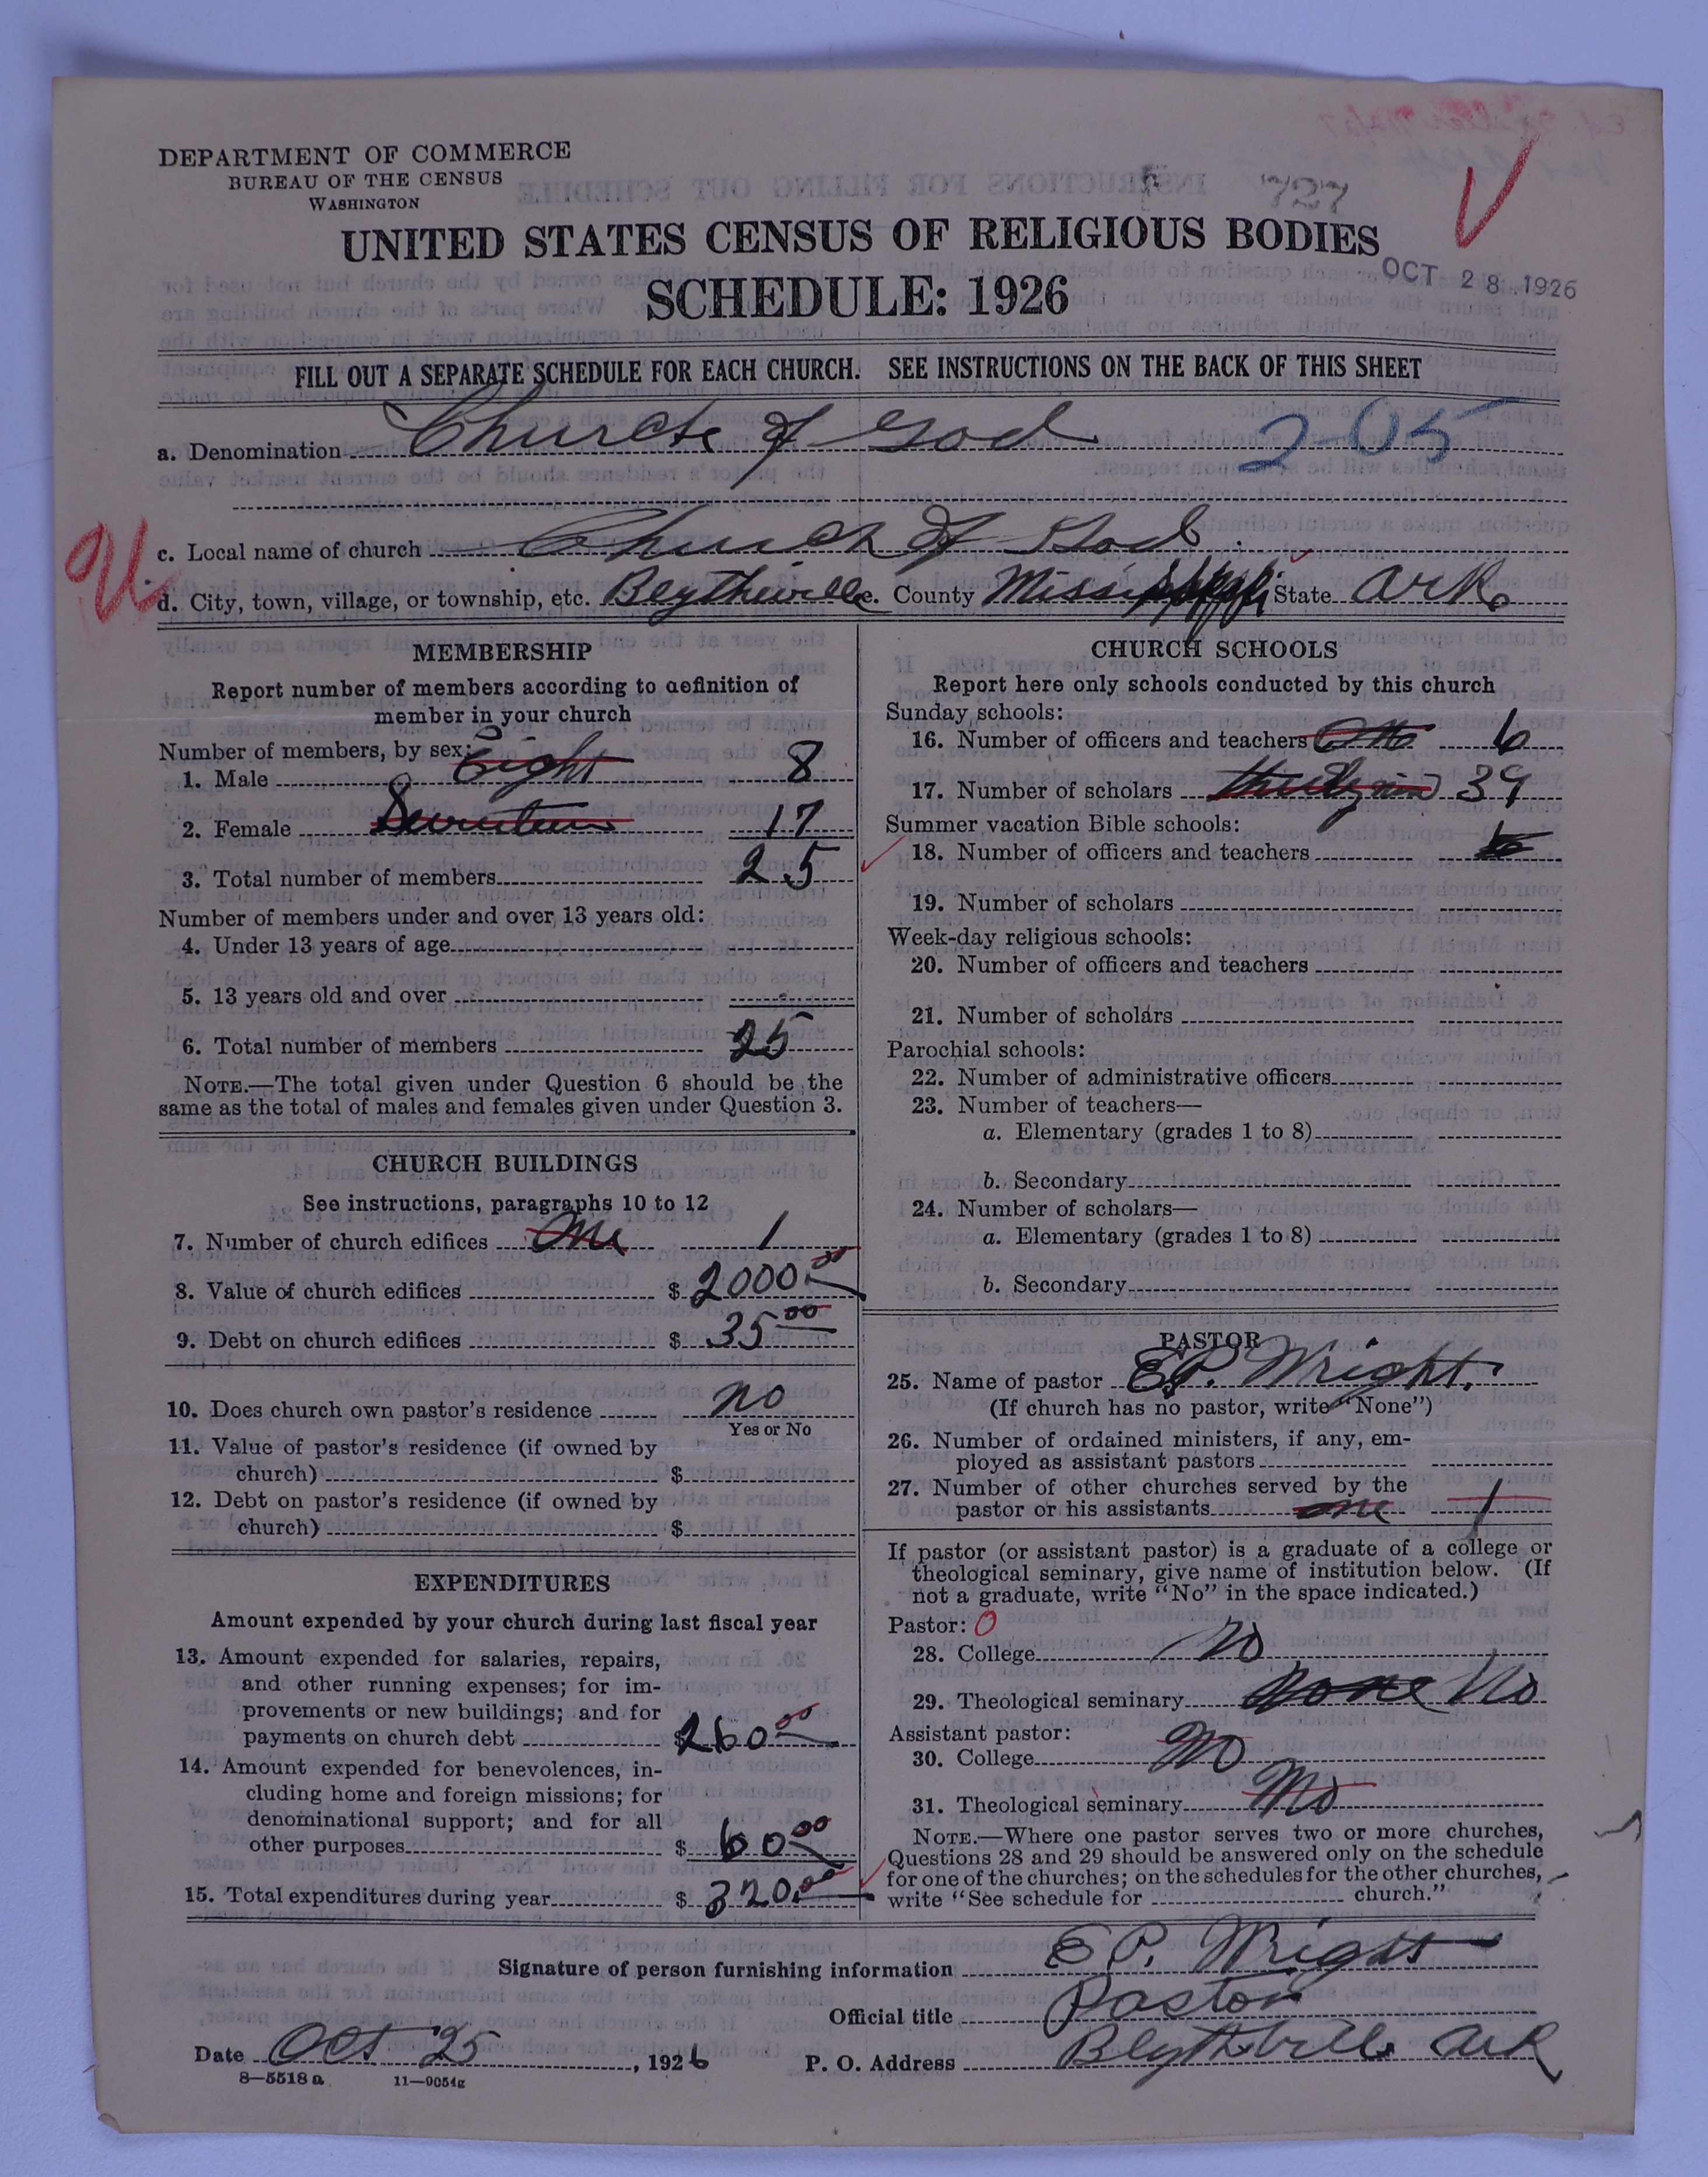 DEPARTMENT OF COMMERCE
BUREAU OF THE CENSUS
WASHINGTON
727
UNITED STATES CENSUS OF RELIGIOUS BODIES
OCT 28 1926
SCHEDULE: 1926
FILL OUT A SEPARATE SCHEDULE FOR EACH CHURCH. SEE INSTRUCTIONS ON THE BACK OF THIS SHEET
a. Denomination Church of God 2-05
c. Local name of church Church of God
d. City, town, village, or township, etc. Blytheville e. County Mississippi State Ark.
MEMBERSHIP
Report number of members according to definition of
member in your church
Number of members, by sex:
1. Male Eight 8
2. Female Seventeen 17
3. Total number of members 25
Number of members under and over 13 years old:
4. Under 13 years of age
5. 13 years old and over
6. Total number of members 25
NOTE.—The total given under Question 6 should be the
same as the total of males and females given under Question 3.
CHURCH BUILDINGS
See instructions, paragraphs 10 to 12
7. Number of church edifices One 1
8. Value of church edifices $ 2000.00
9. Debt on church edifices $ 35.00
10. Does church own pastor's residence no
Yes or No
11. Value of pastor's residence (if owned by
church) $
12. Debt on pastor's residence (if owned by
church) $
EXPENDITURES
Amount expended by your church during last fiscal year
13. Amount expended for salaries, repairs,
and other running expenses; for im-
provements or new buildings; and for
payments on church debt $ 260.00
14. Amount expended for benevolences, in-
cluding home and foreign missions; for
denominational support; and for all
other purposes $ 60.00
15. Total expenditures during year $ 320.00
CHURCH SCHOOLS
Report here only schools conducted by this church
Sunday schools:
16. Number of officers and teachers 6
17. Number of scholars thirty nine 39
Summer vacation Bible schools:
18. Number of officers and teachers
19. Number of scholars
Week-day religious schools:
20. Number of officers and teachers
21. Number of scholars
Parochial schools:
22. Number of administrative officers
23. Number of teachers—
a. Elementary (grades 1 to 8)
b. Secondary
24. Number of scholars—
a. Elementary (grades 1 to 8)
b. Secondary
PASTOR
25. Name of pastor E.P. Wright.
(If church has no pastor, write "None")
26. Number of ordained ministers, if any, em-
ployed as assistant pastors
27. Number of other churches served by the
pastor or his assistants one 1
If pastor (or assistant pastor) is a graduate of a college or
theological seminary, give name of institution below. (If
not a graduate, write "No" in the space indicated.)
Pastor: 0
28. College no
29. Theological seminary None No
Assistant pastor:
30. College No
31. Theological seminary No
NOTE.—Where one pastor serves two or more churches,
Questions 28 and 29 should be answered only on the schedule
for one of the churches; on the schedules for the other churches,
write "See schedule for church."
Signature of person furnishing information E P. Wright
Official title Pastor
Date Oct 25, 1926 P. O. Address Blythville Ark
8—5518a 11—9054g